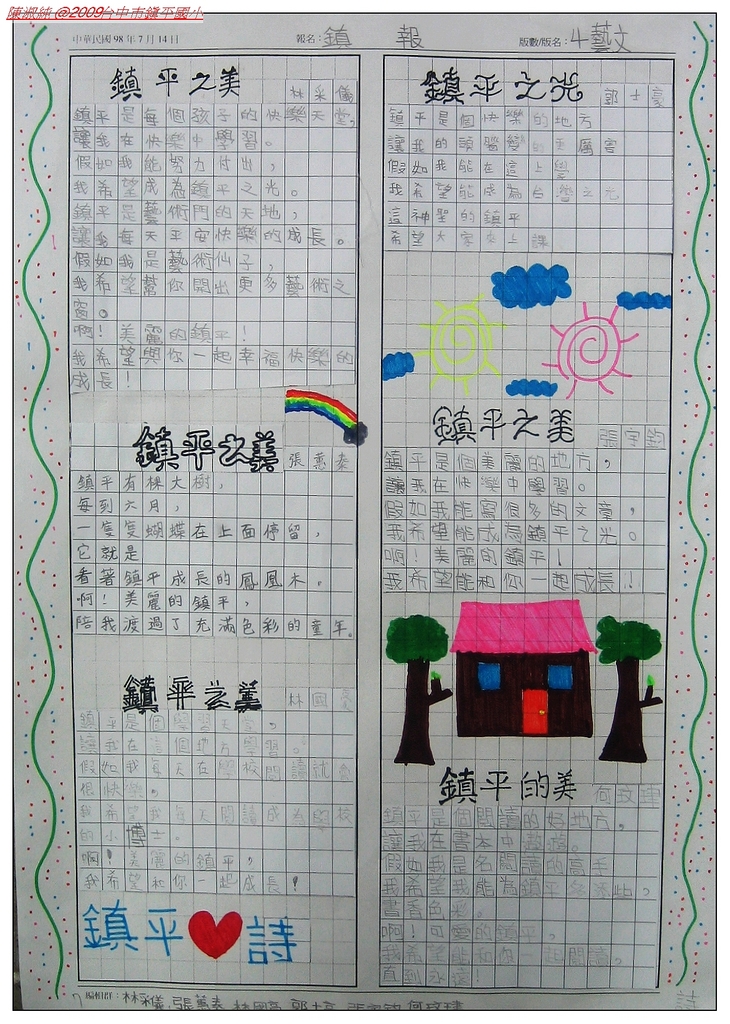 陳淑純 @2009台中市鎮平國小
中華民國 98 年 7 月 14 日
報名：鎮 報
版數/版名：4藝文
鎮平之美
林采儀
鎮平是每個孩子的快樂天堂，
讓我在快樂中學習。
假如我能努力付出，
我希望成為鎮平之光。
鎮平是藝術門的天地，
讓我每天平安快樂的成長。
假如我是藝術仙子，
我希望幫你開出更多藝術之
窗。
啊！美麗的鎮平！
我希望與你一起幸福快樂的
成長！
鎮平之美
張蕙泰
鎮平有棵大樹，
每到六月，
一隻隻蝴蝶在上面停留，
它就是
看著鎮平成長的鳳凰木。
啊！美麗的鎮平，
陪我渡過了充滿色彩的童年。
鎮平之美
林國
鎮平是個學習天堂，
讓我在這個地方學習。
假如我每天在學校閱讀就會
很快樂，
我希望我每天閱讀成為學校
的小博士。
啊！美麗的鎮平，
我希望和你一起成長！
鎮平詩
鎮平之光
郭士豪
鎮平是個快樂的地方
讓我的頭腦變的更厲害
假如我能在這上學
我希望能成為台灣之光
這神聖的鎮平
希望大家來上課
鎮平之美
張宇鈞
鎮平是個美麗的地方，
讓我在快樂中學習。
假如我能寫很多的文章，
我希望能成為鎮平之光。
啊！美麗的鎮平！
我希望能和你一起成長！
鎮平的美
何玟瑋
鎮平是個閱讀的好地方，
讓我在書本中遨遊。
假如我是名閱讀的高手
我希望我能為鎮平多添些，
書香色彩。
啊！可愛的鎮平，
我希望能和你一起閱讀，
直到永遠！
編輯群：林采儀、張蕙泰
詩